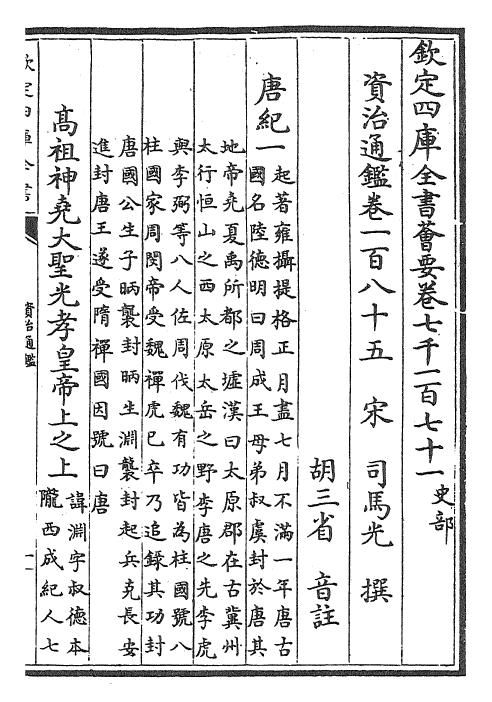 欽定四庫全書薈要卷七千一百七十一 史部
資治通鑑卷一百八十五 宋 司馬光 撰
胡三省 音註
唐紀一 起著雍攝提格正月盡七月不滿一年唐古
國名陸德明曰周成王母弟叔虞封於唐其
地帝堯夏禹所都之墟漢曰太原郡在古冀州
太行恒山之西太原太岳之野李唐之先李虎
與李弼等八人佐周伐魏有功皆為柱國號八
柱國家周閔帝受魏禪虎已卒乃追錄其功封
唐國公生子昞襲封昞生淵襲封起兵克長安
進封唐王遂受隋禪國因號曰唐
高祖神堯大聖光孝皇帝上之上 諱淵字叔德本
隴西成紀人七
欽定四庫全書
資治通鑑
一